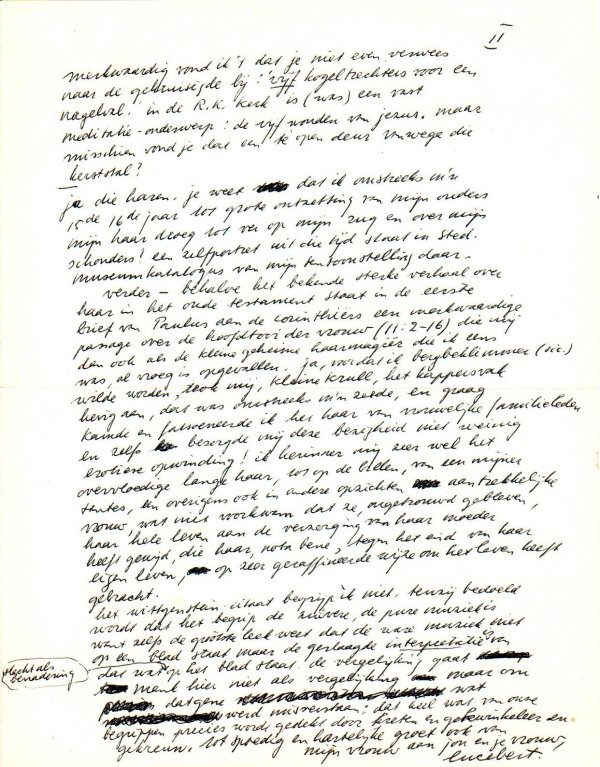 II
merkwaardig vond ik 't dat je niet even verwees
naar de gekruisigde bij: 'vijf kogeltrechters voor een
nagelval.' in de R.K. kerk is (was) een vast
meditatie-onderwerp: de vijf wonden van jezus. maar
misschien vond je dat een te open deur vanwege die
kerststal?
ja die haren. je weet dat ik omstreeks m'n
15de 16de jaar tot grote ontzetting van mijn ouders
mijn haar droeg tot ver op mijn rug en over mijn
schouders! een zelfportret uit die tijd staat in Sted.
museumkatalogus van mijn tentoonstelling daar.
verder – behalve het bekende sterke verhaal over
haar in het oude testament staat in de eerste
brief van Paulus aan de corinthiërs een merkwaardige
passage over de hoofdtooi der vrouw (11:2-16) die mij
dan ook als de kleine geheime haarmagiër die ik eens
was, al vroeg is opgevallen. ja, voordat ik bergbeklimmer (sic.)
wilde worden, trok mij, kleine krull, het kappersvak
hevig aan, dat was omstreeks m'n zesde, en graag
kamde en fatsoeneerde ik het haar van vrouwelijke familieleden
en zelfs bezorgde mij deze bezigheid niet weinig
erotiese opwinding! ik herinner mij zeer wel het
overvloedige lange haar, tot op de billen, van een mijner
tantes, een overigens ook in andere opzichten aantrekkelijke
vrouw, wat niet voorkwam dat ze, ongetrouwd gebleven,
haar hele leven aan de verzorging van haar moeder
heeft gewijd, die haar, nota bene, tegen het eind van haar
eigen leven, op zeer geraffineerde wijze om het leven heeft
gebracht.
het wittgenstein-citaat begrijp ik niet. tenzij bedoeld
wordt dat het begrip de zuivere, de pure muziek is
want zelfs de grootste leek weet dat de ware muziek niet
op een blad staat maar de geslaagde interpretatie van
dat wat op het blad staat. de vergelijking gaat
slechts als
benadering
mank hier niet als vergelijking maar om
datgene wat
werd misverstaan: dat heil was van onze
begrippen precies wordt gedekt door kreten en
gekreun. tot spoedig en hartelijke groet ook van
mijn vrouw aan jou en je vrouw,
lucebert.